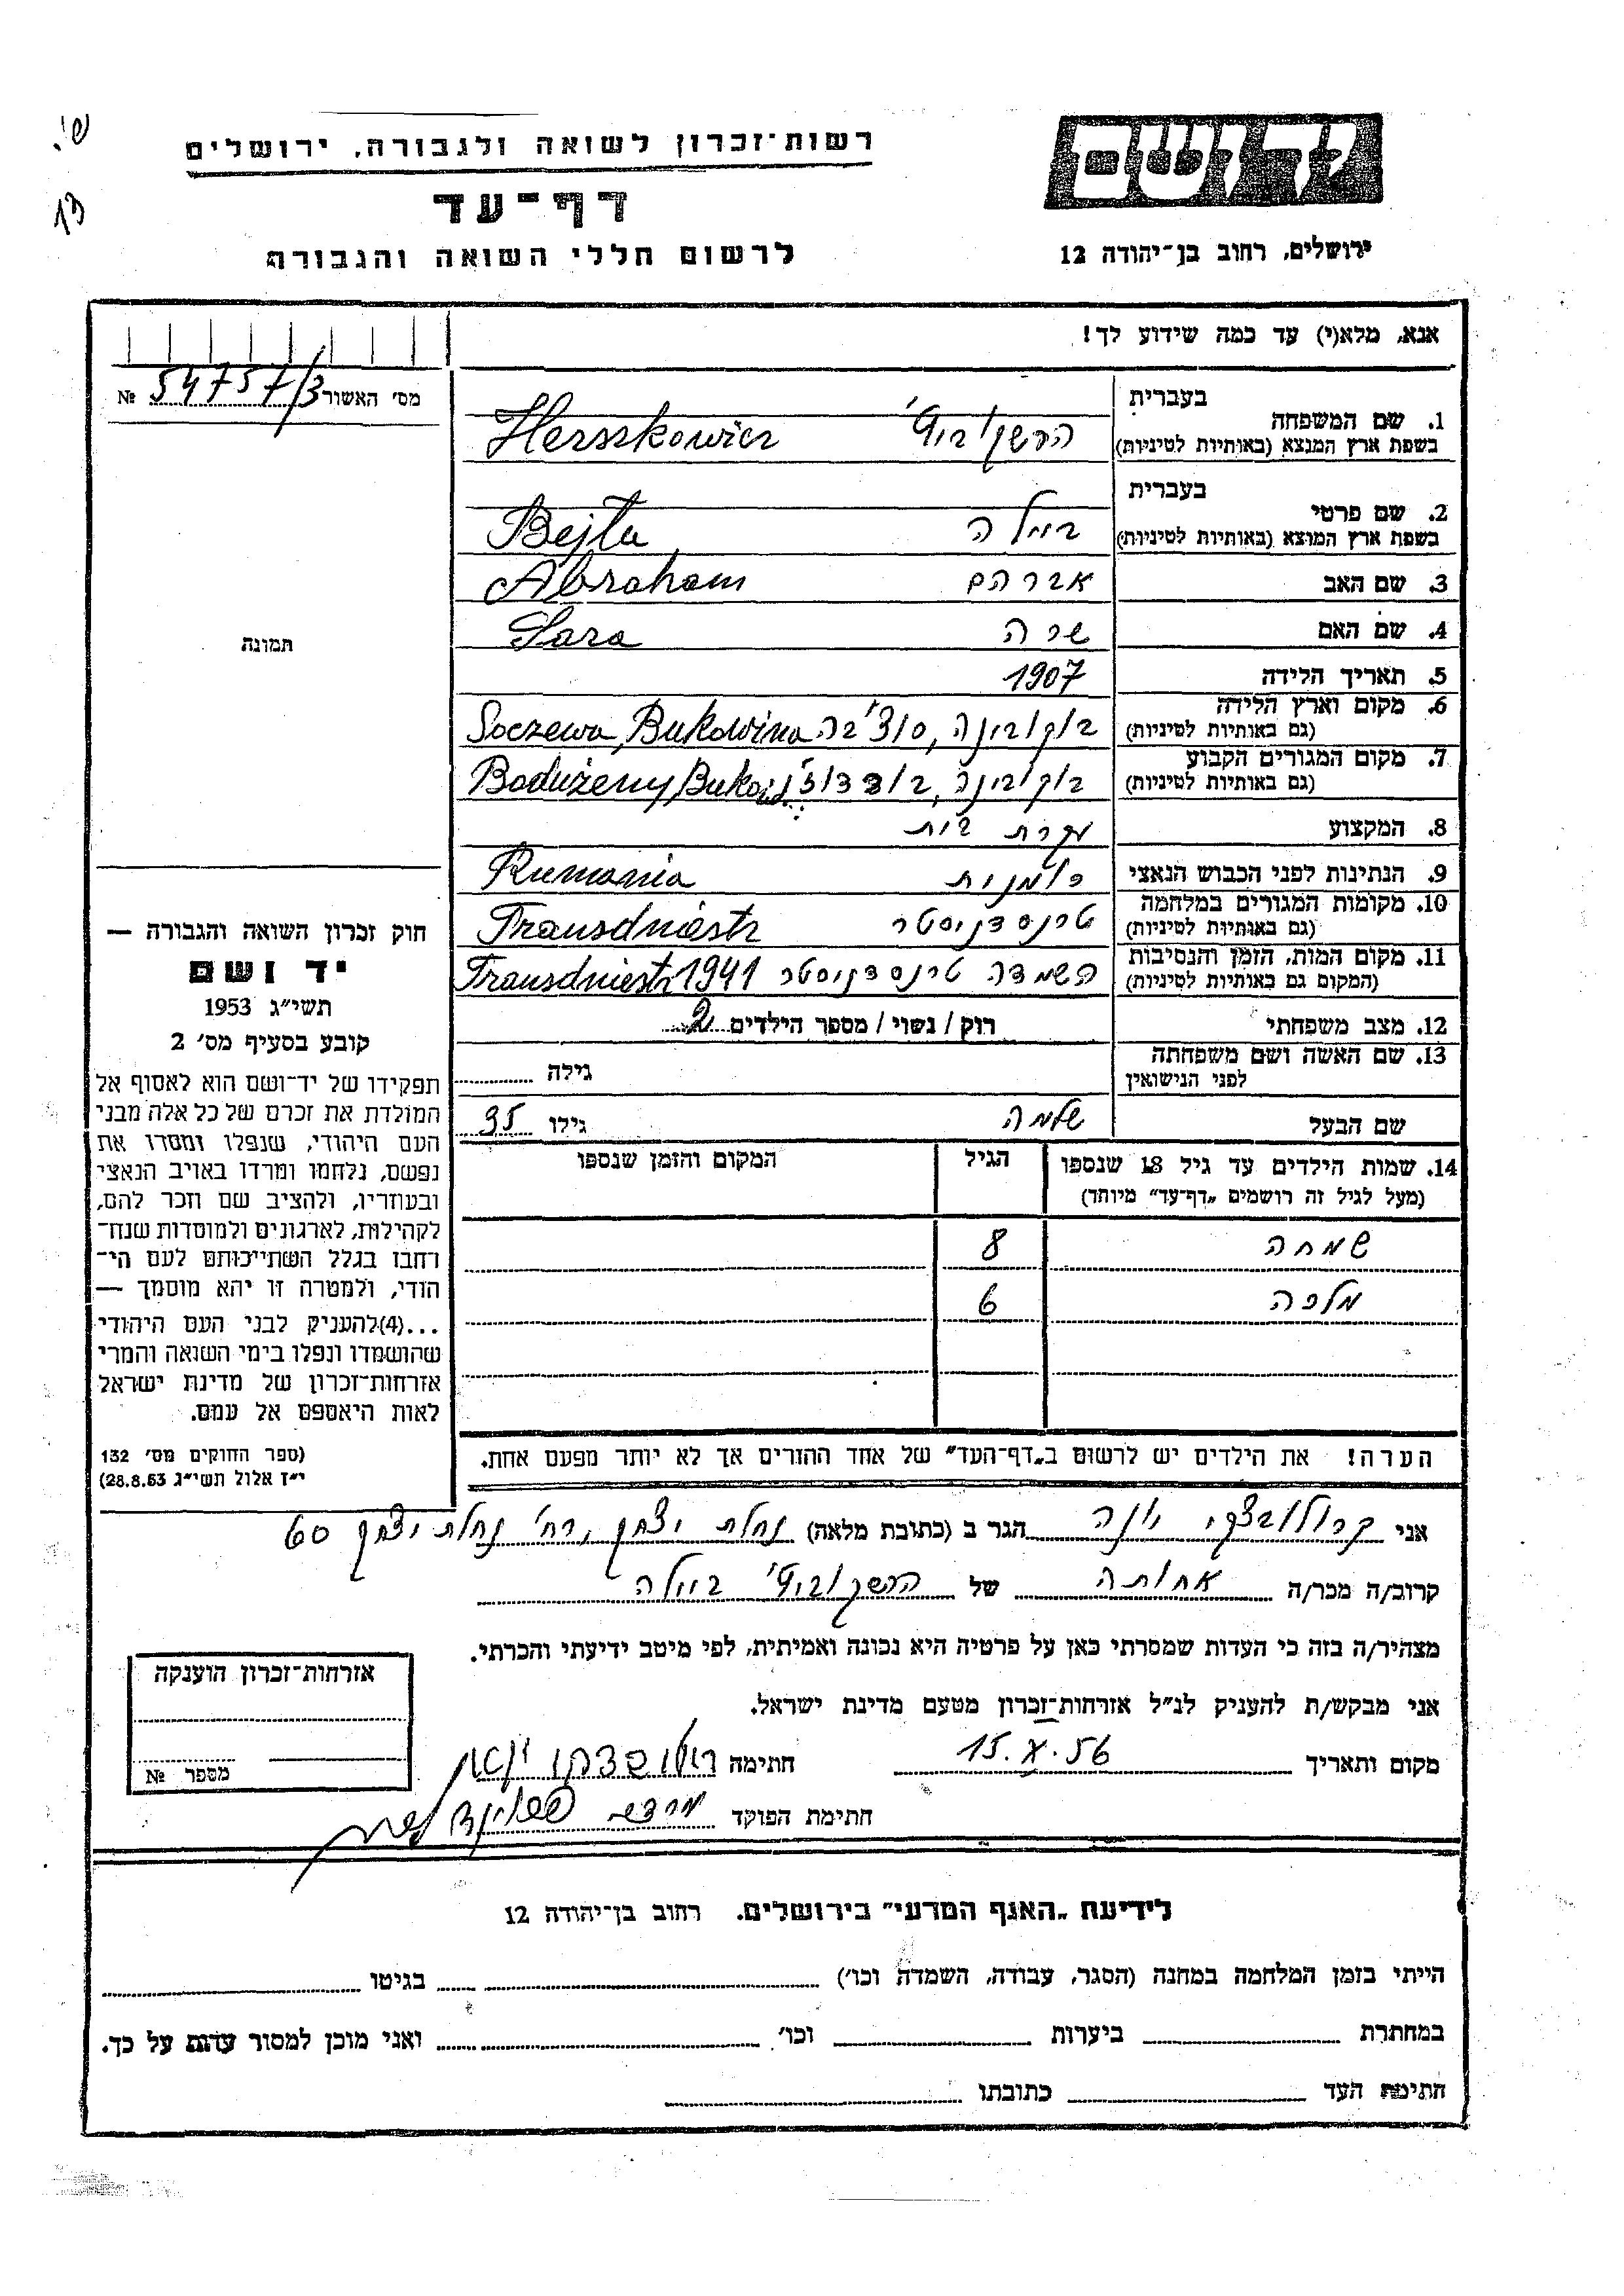 רשות־זכרון לשואה ולגבורה, ירושלים
דף־עד
לרשום חללי השואה והגבורה
יד ושם
ירושלים, רחוב בן־יהודה 12
13
אנא, מלא(י) עד כמה שידוע לך!
מס׳ האשור 54757/3 №
תמונה
1. שם המשפחה
בעברית
בשפת ארץ המוצא (באותיות לטיניות)
הרשקוביץ׳ Herszkowicz
2. שם פרטי
בעברית
בשפת ארץ המוצא (באותיות לטיניות)
ביילה Bejla
3. שם האב אברהם Abraham
4. שם האם שרה Sara
5. תאריך הלידה 1907
6. מקום וארץ הלידה
(גם באותיות לטיניות)
בוקובינה, סוצ׳בה Soczewa, Bukowina
7. מקום המגורים הקבוע
(גם באותיות לטיניות)
בוקובינה, Bodużeny,
8. המקצוע עקרת בית
9. הנתינות לפני הכבוש הנאצי רומנית Rumania
10. מקומות המגורים במלחמה
(גם באותיות לטיניות)
טרנסדניסטר Transdniestr
11. מקום המות, הזמן והנסיבות
(המקום גם באותיות לטיניות)
השמדה טרנסדניסטר Transdniestr 1941
12. מצב משפחתי רוק / נשוי / מספר הילדים 2
13. שם האשה ושם משפחתה
לפני הנישואין
גילה
שם הבעל שלמה גילו 35
14. שמות הילדים עד גיל 18 שנספו
(מעל לגיל זה רושמים „דף־עד״ מיוחד)
הגיל המקום והזמן שנספו
שמחה 8
מלכה 6
הערה! את הילדים יש לרשום ב„דף־העד״ של אחד ההורים אך לא יותר מפעם אחת.
חוק זכרון השואה והגבורה —
יד ושם
תשי״ג 1953
קובע בסעיף מס׳ 2
תפקידו של יד־ושם הוא לאסוף אל
המולדת את זכרם של כל אלה מבני
העם היהודי, שנפלו ומסרו את
נפשם, נלחמו ומרדו באויב הנאצי
ובעוזריו, ולהציב שם וזכר להם,
לקהילות, לארגונים ולמוסדות שנח־
רחבו בגלל השתייכותם לעם הי־
הודי, ולמטרה זו יהא מוסמך —
...(4)להעניק לבני העם היהודי
שהושמדו ונפלו בימי השואה והמרי
אזרחות־זכרון של מדינת ישראל
לאות היאספם אל עמם.
(ספר החוקים מס׳ 132
י״ז אלול תשי״ג 28.8.53)
אני יונה הגר ב (כתובת מלאה) נחלת יצחק, רח׳ נחלת יצחק 60
קרוב/ה מכר/ה אחותה של הרשקוביץ׳ ביילה
מצהיר/ה בזה כי העדות שמסרתי כאן על פרטיה היא נכונה ואמיתית, לפי מיטב ידיעתי והכרתי.
אני מבקש/ת להעניק לנ״ל אזרחות־זכרון מטעם מדינת ישראל.
מקום ותאריך 15.X.56 חתימה
חתימת הפוקד
אזרחות־זכרון הוענקה
מספר №
לידיעת „האגף המדעי״ בירושלים, רחוב בן־יהודה 12
הייתי בזמן המלחמה במחנה (הסגר, עבודה, השמדה וכו׳) בגיטו
במחתרת ביערות וכו׳ ואני מוכן למסור עדות על כך.
חתימת העד כתובתו